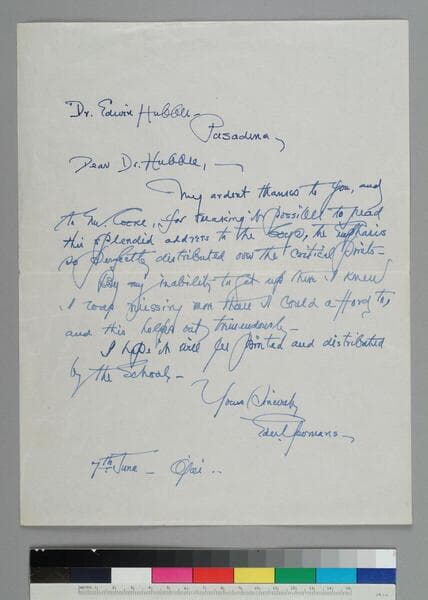 Dr. Edwin Hubble
Pasadena,
Dear Dr. Hubble, —
My ardent thanks to you, and
to Mr. , for making it possible to read
this splendid address to the boys, the emphasis
so perfectly distributed over the critical points —
By my inability to get up there I knew
I was missing more than I could afford to,
and this helps out tremendously —
I hope it will be printed and distributed
by the Schools —
Yours Sincerely
Yeomans
7th June — Ojai ..